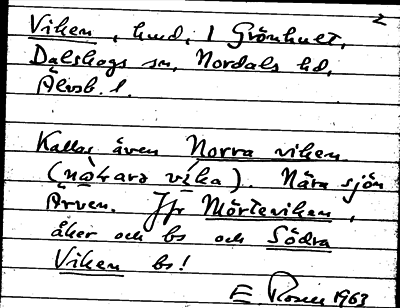 2
Viken, hmd, 1 Grönhult,
Dalskogs sn, Nordals hd,
Älvsb. l.
Kallas även Norra viken
(nòrara víka). Nära sjön
Ärven. Jfr Mörteviken,
åker och bs och Södra
Viken bs!
E 1963